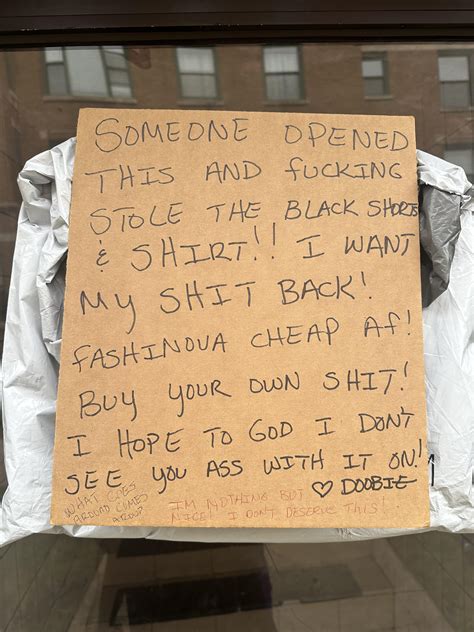 SOMEONE OPENED
THIS AND fUCKING
STOLE THE BLACK SHORTS
& SHIRT!! I WANT
MY SHIT BACK!
FASHINOVA CHEAP Af!
BUY YOUR OWN SHIT!
I HOPE TO GOD I DON'T
SEE YOU ASS WITH IT ON!
♡ DOOBIE
WHAT GOES
AROUND COMES
AROUND
I'M NOTHING BUT
NICE! I DON'T DESERVE THIS!